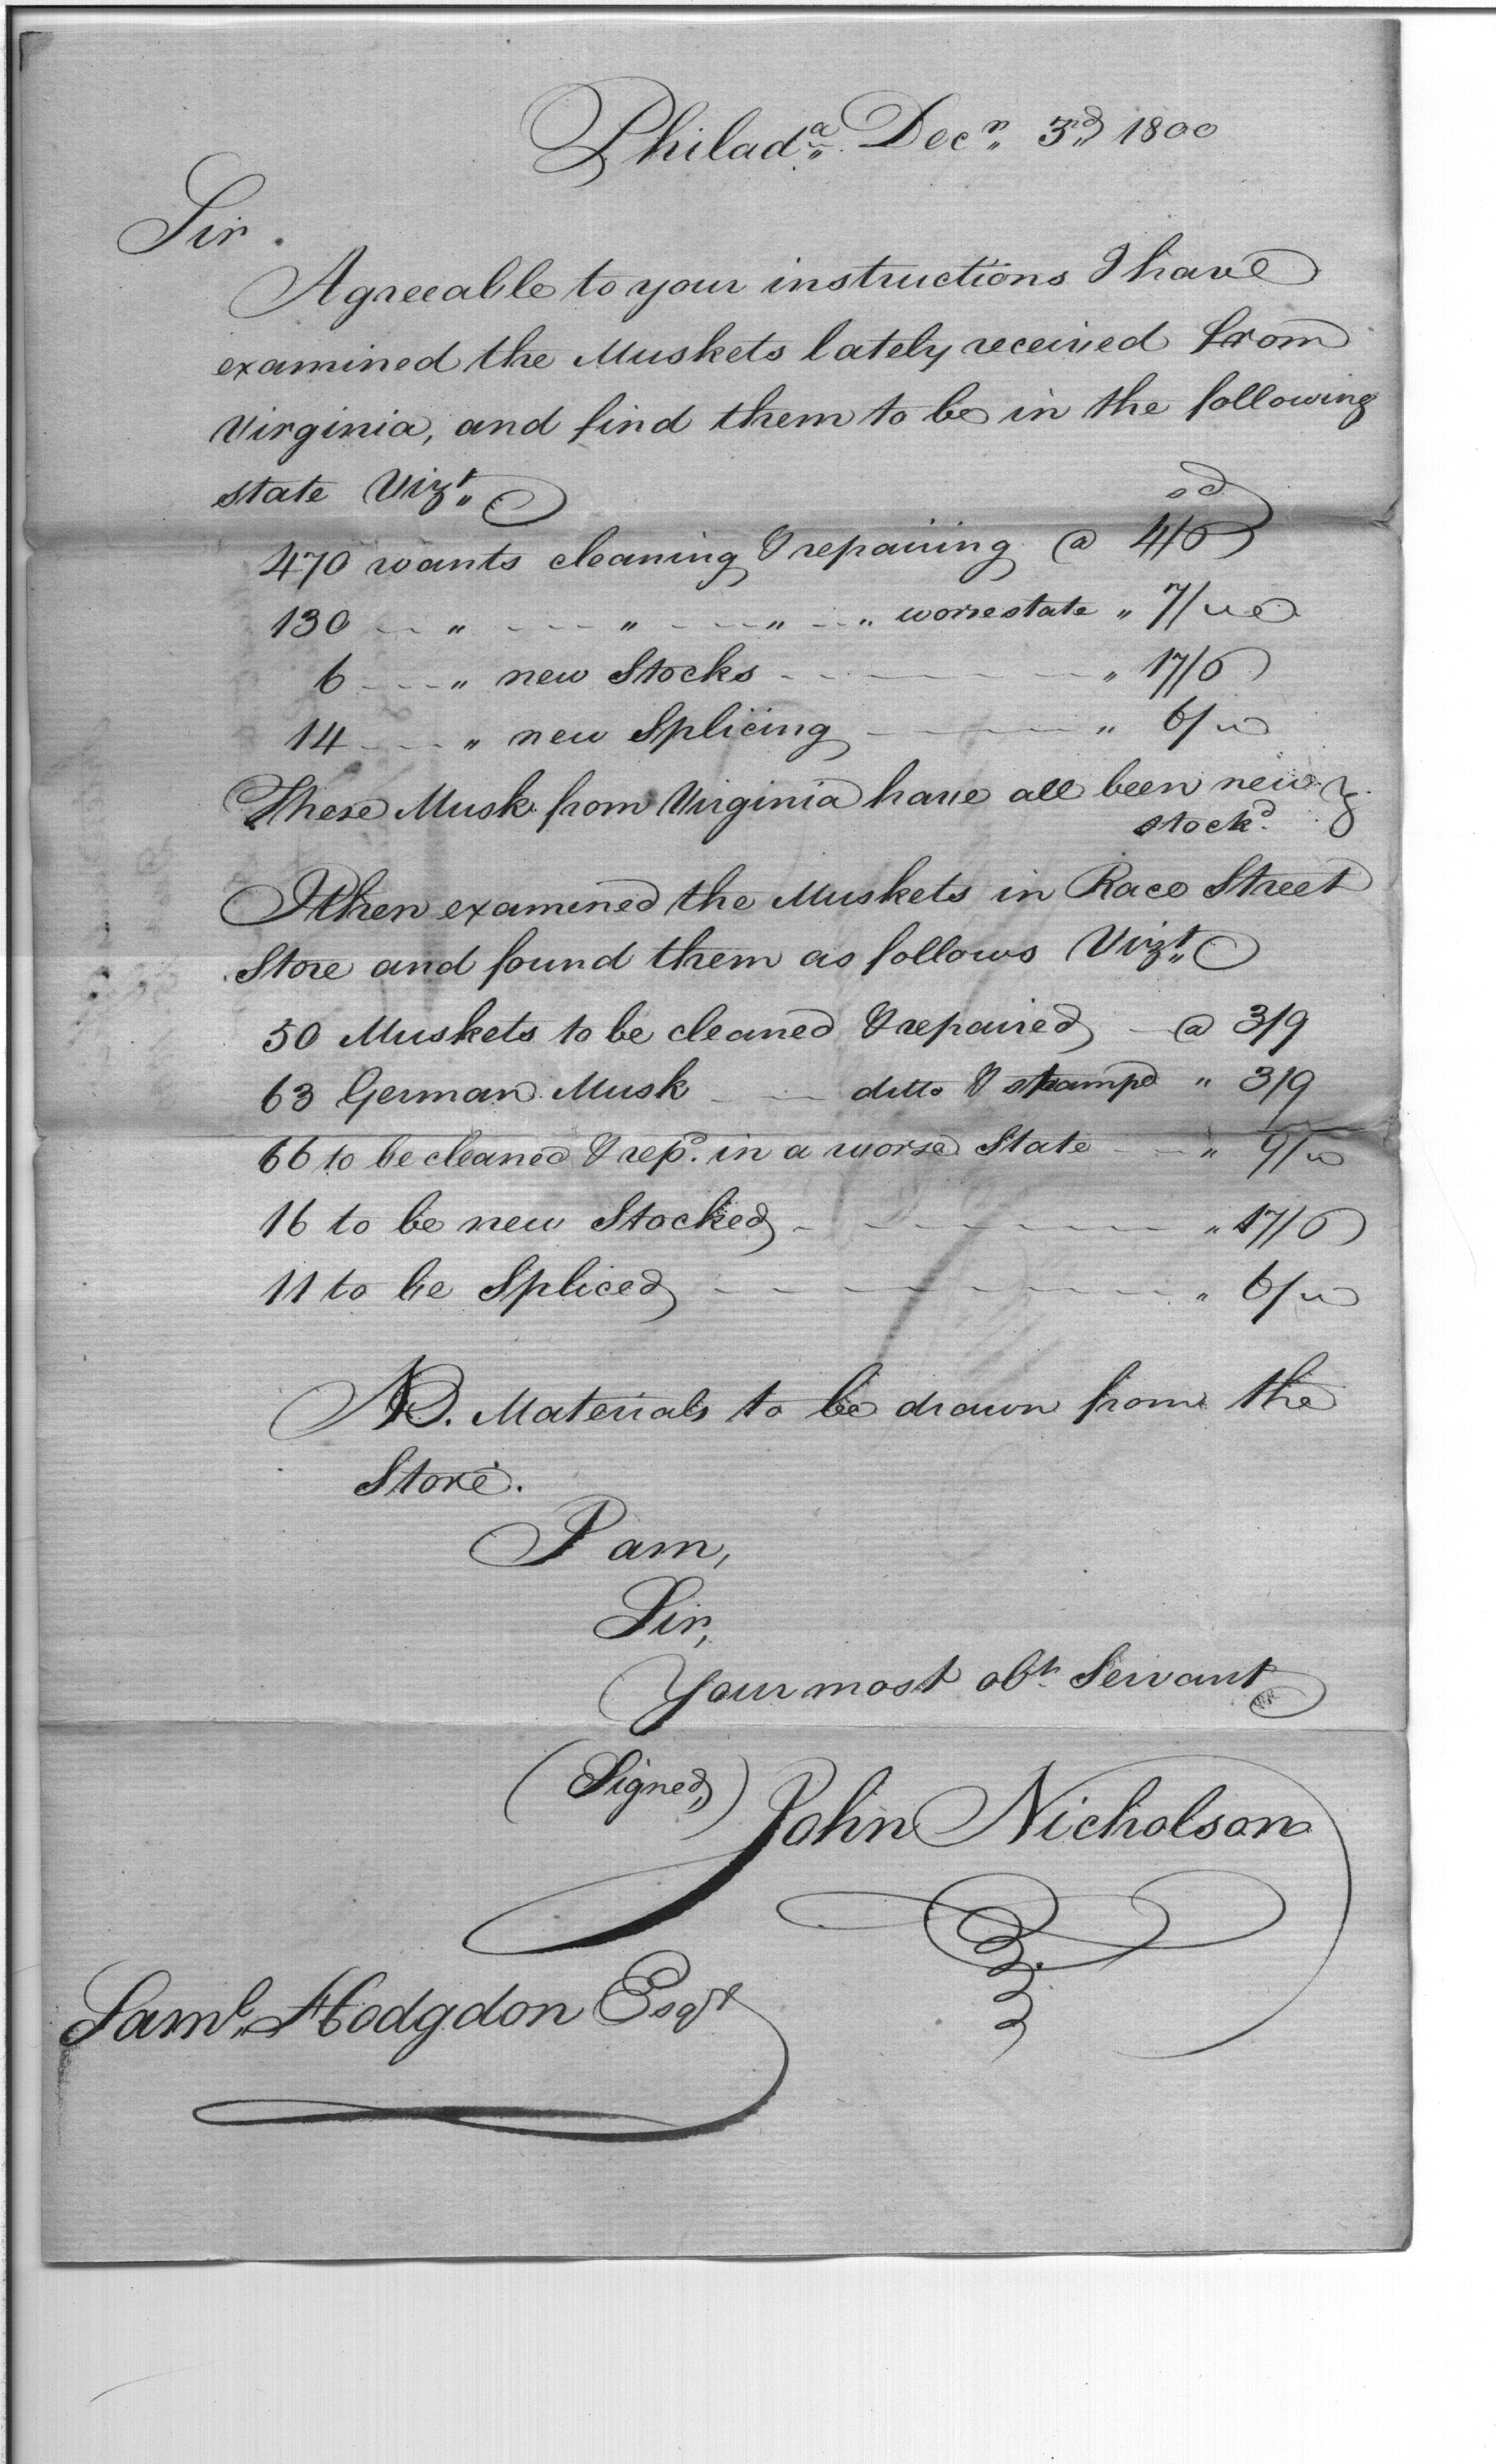 Philad.a Decr. 3d. 1800
Sir.
Agreeable to your instructions I have
examined the Muskets lately received from
Virginia, and find them to be in the following
state Vizt.
s d
470 wants cleaning & repairing @ 4/6
130 " " " " worse state " 7/
6 " new Stocks " 17/6
14 " new Splicing " 6/
These Musk. from Virginia have all been new
stockd.
I then examined the Muskets in Race Street
Store and found them as follows Vizt.
50 Muskets to be cleaned & repaired @ 3/9
63 German Musk ditto & stampd " 3/9
66 to be cleaned & repd. in a worse State " 9/
16 to be new Stocked " 17/6
11 to be Spliced " 6/
NB. Materials to be drawn from the
Store.
I am,
Sir,
Your most obt. Servant
(Signed,) John Nicholson
Saml. Hodgdon Esqr